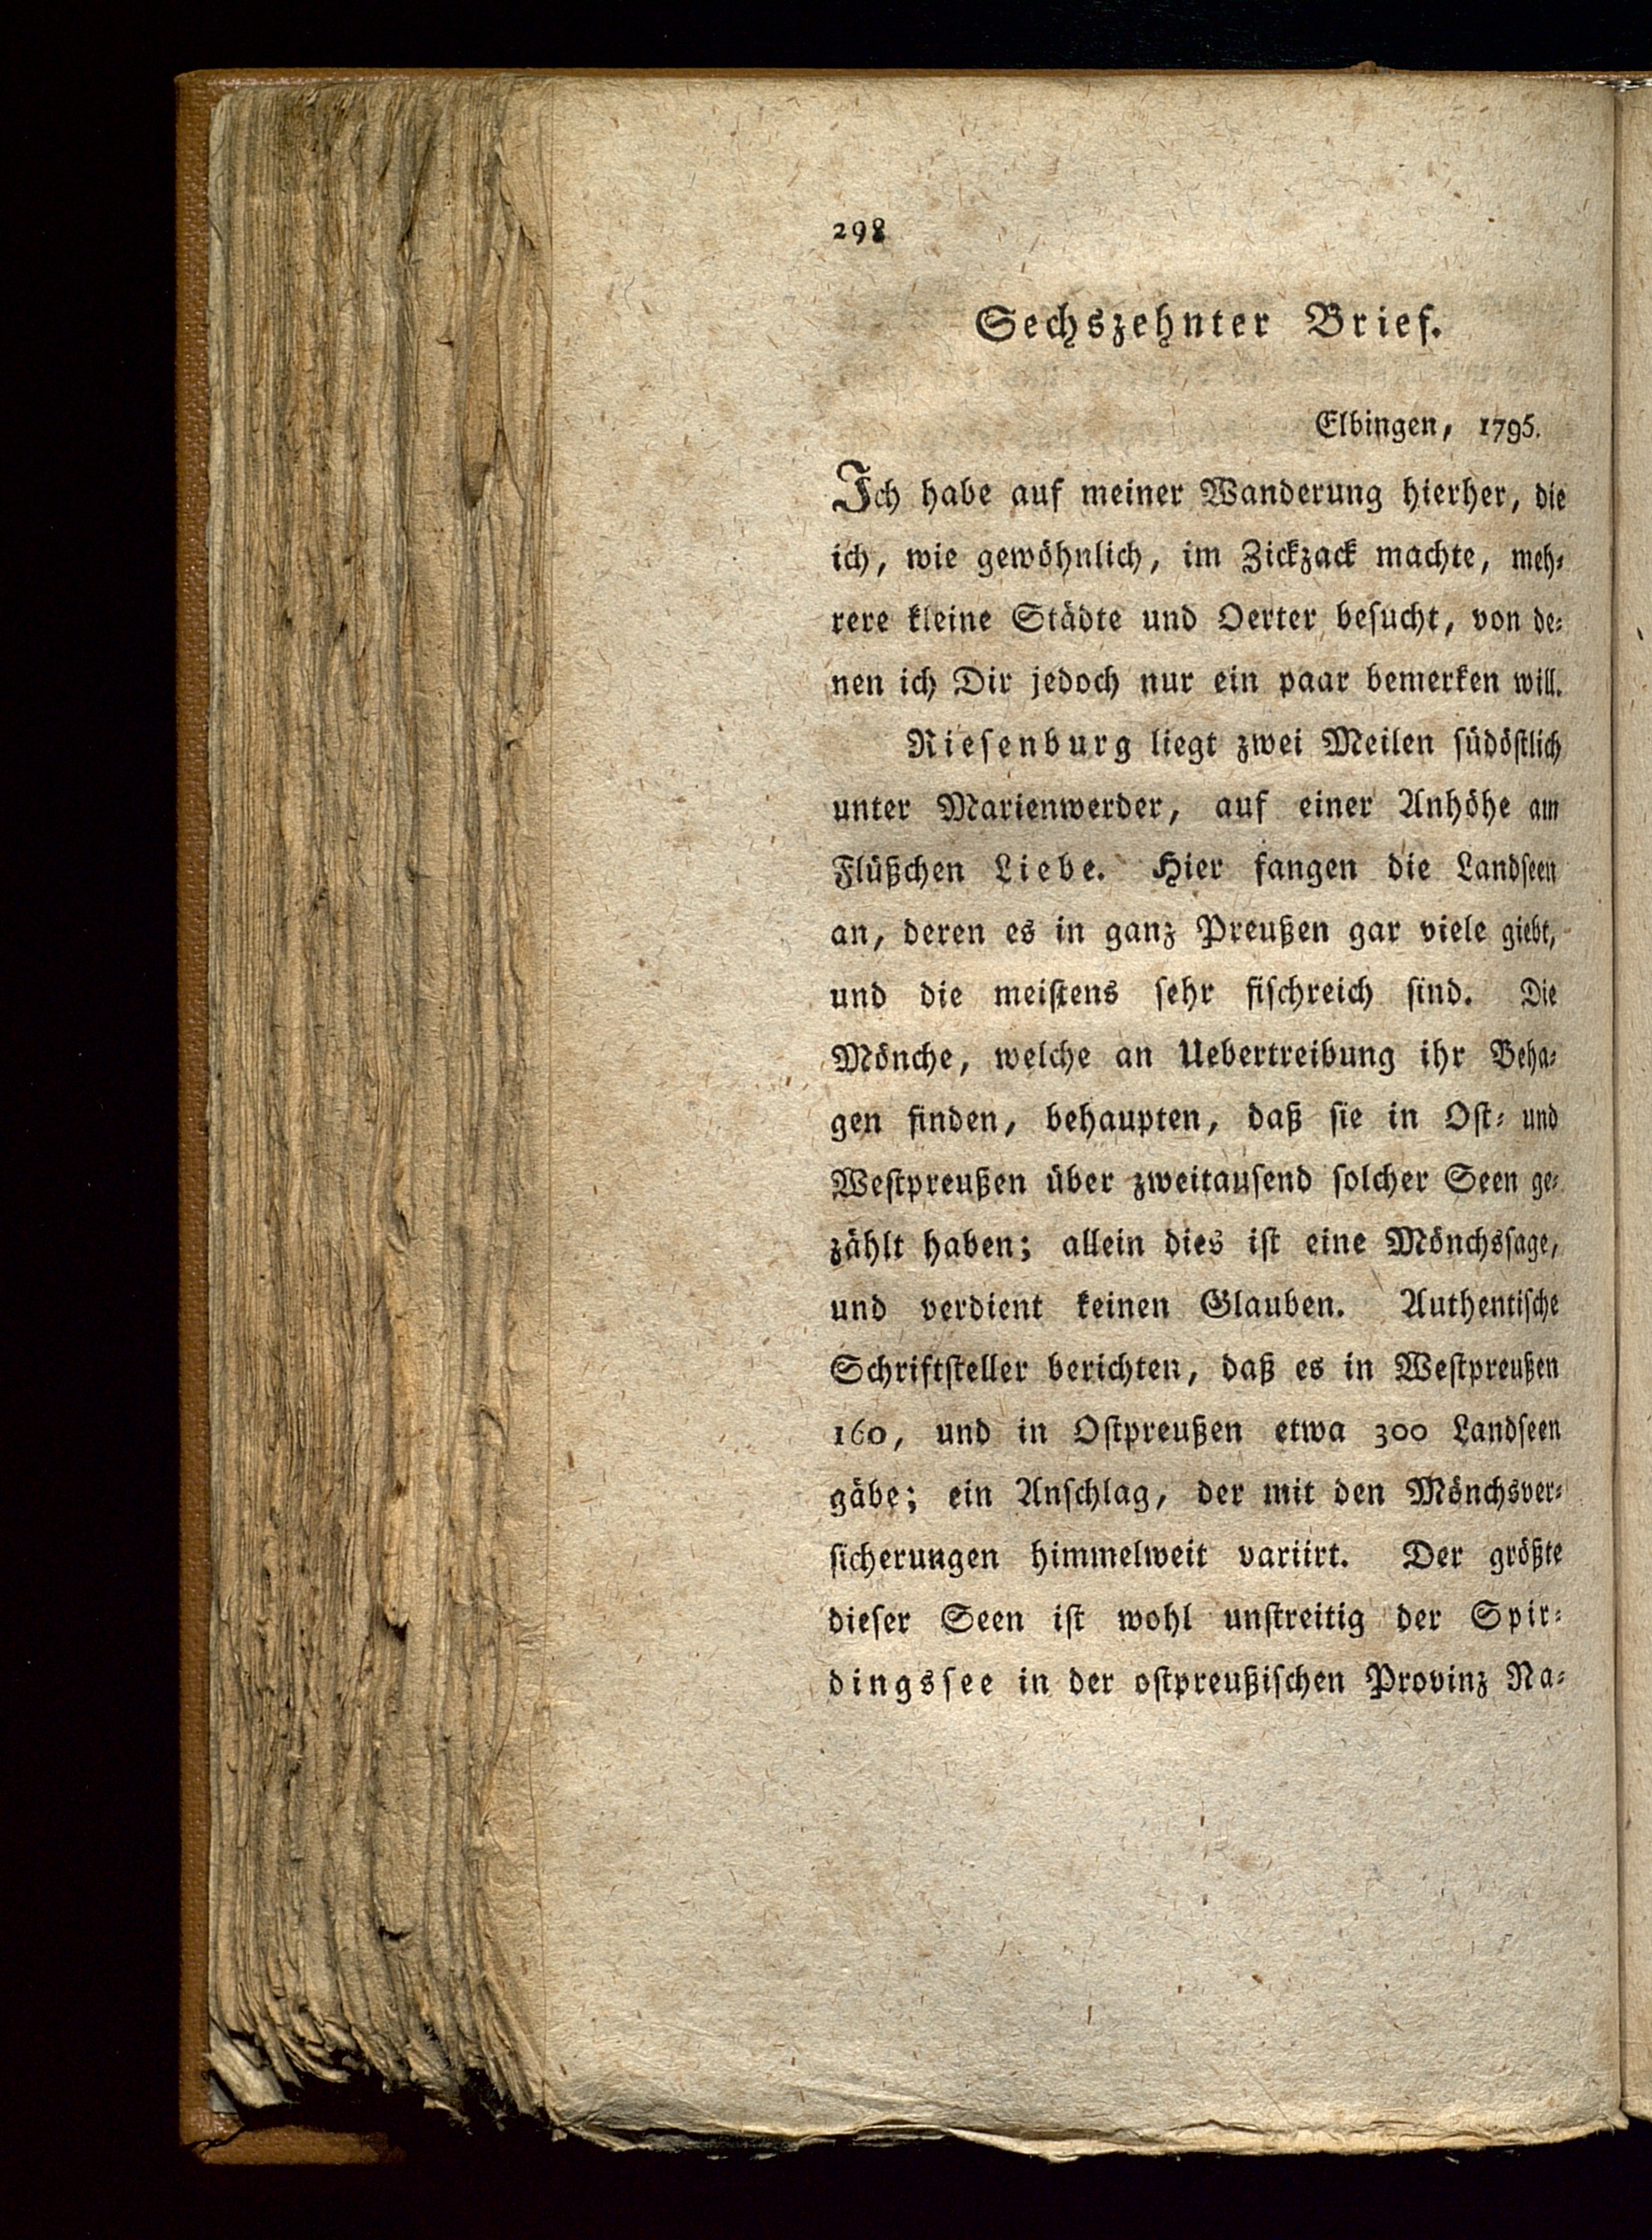 298
Sechszehnter Brief.
Elbingen, 1795.
Ich habe auf meiner Wanderung hierher, die
ich, wie gewöhnlich, im Zickzack machte, meh⸗
rere kleine Städte und Oerter besucht, von de⸗
nen ich Dir jedoch nur ein paar bemerken will.
Riesenburg liegt zwei Meilen südöstlich
unter Marienwerder, auf einer Anhöhe am
Flüßchen Liebe. Hier fangen die Landseen
an, deren es in ganz Preußen gar viele giebt,
und die meistens sehr fischreich sind. Die
Mönche, welche an Uebertreibung ihr Beha⸗
gen finden, behaupten, daß sie in Ost⸗ und
Westpreußen über zweitausend solcher Seen ge⸗
zählt haben; allein dies ist eine Mönchssage,
und verdient keinen Glauben. Authentische
Schriftsteller berichten, daß es in Westpreußen
160, und in Ostpreußen etwa 300 Landseen
gäbe; ein Anschlag, der mit den Mönchsver⸗
sicherungen himmelweit variirt. Der größte
dieser Seen ist wohl unstreitig der Spir⸗
dingssee in der ostpreußischen Provinz Na⸗